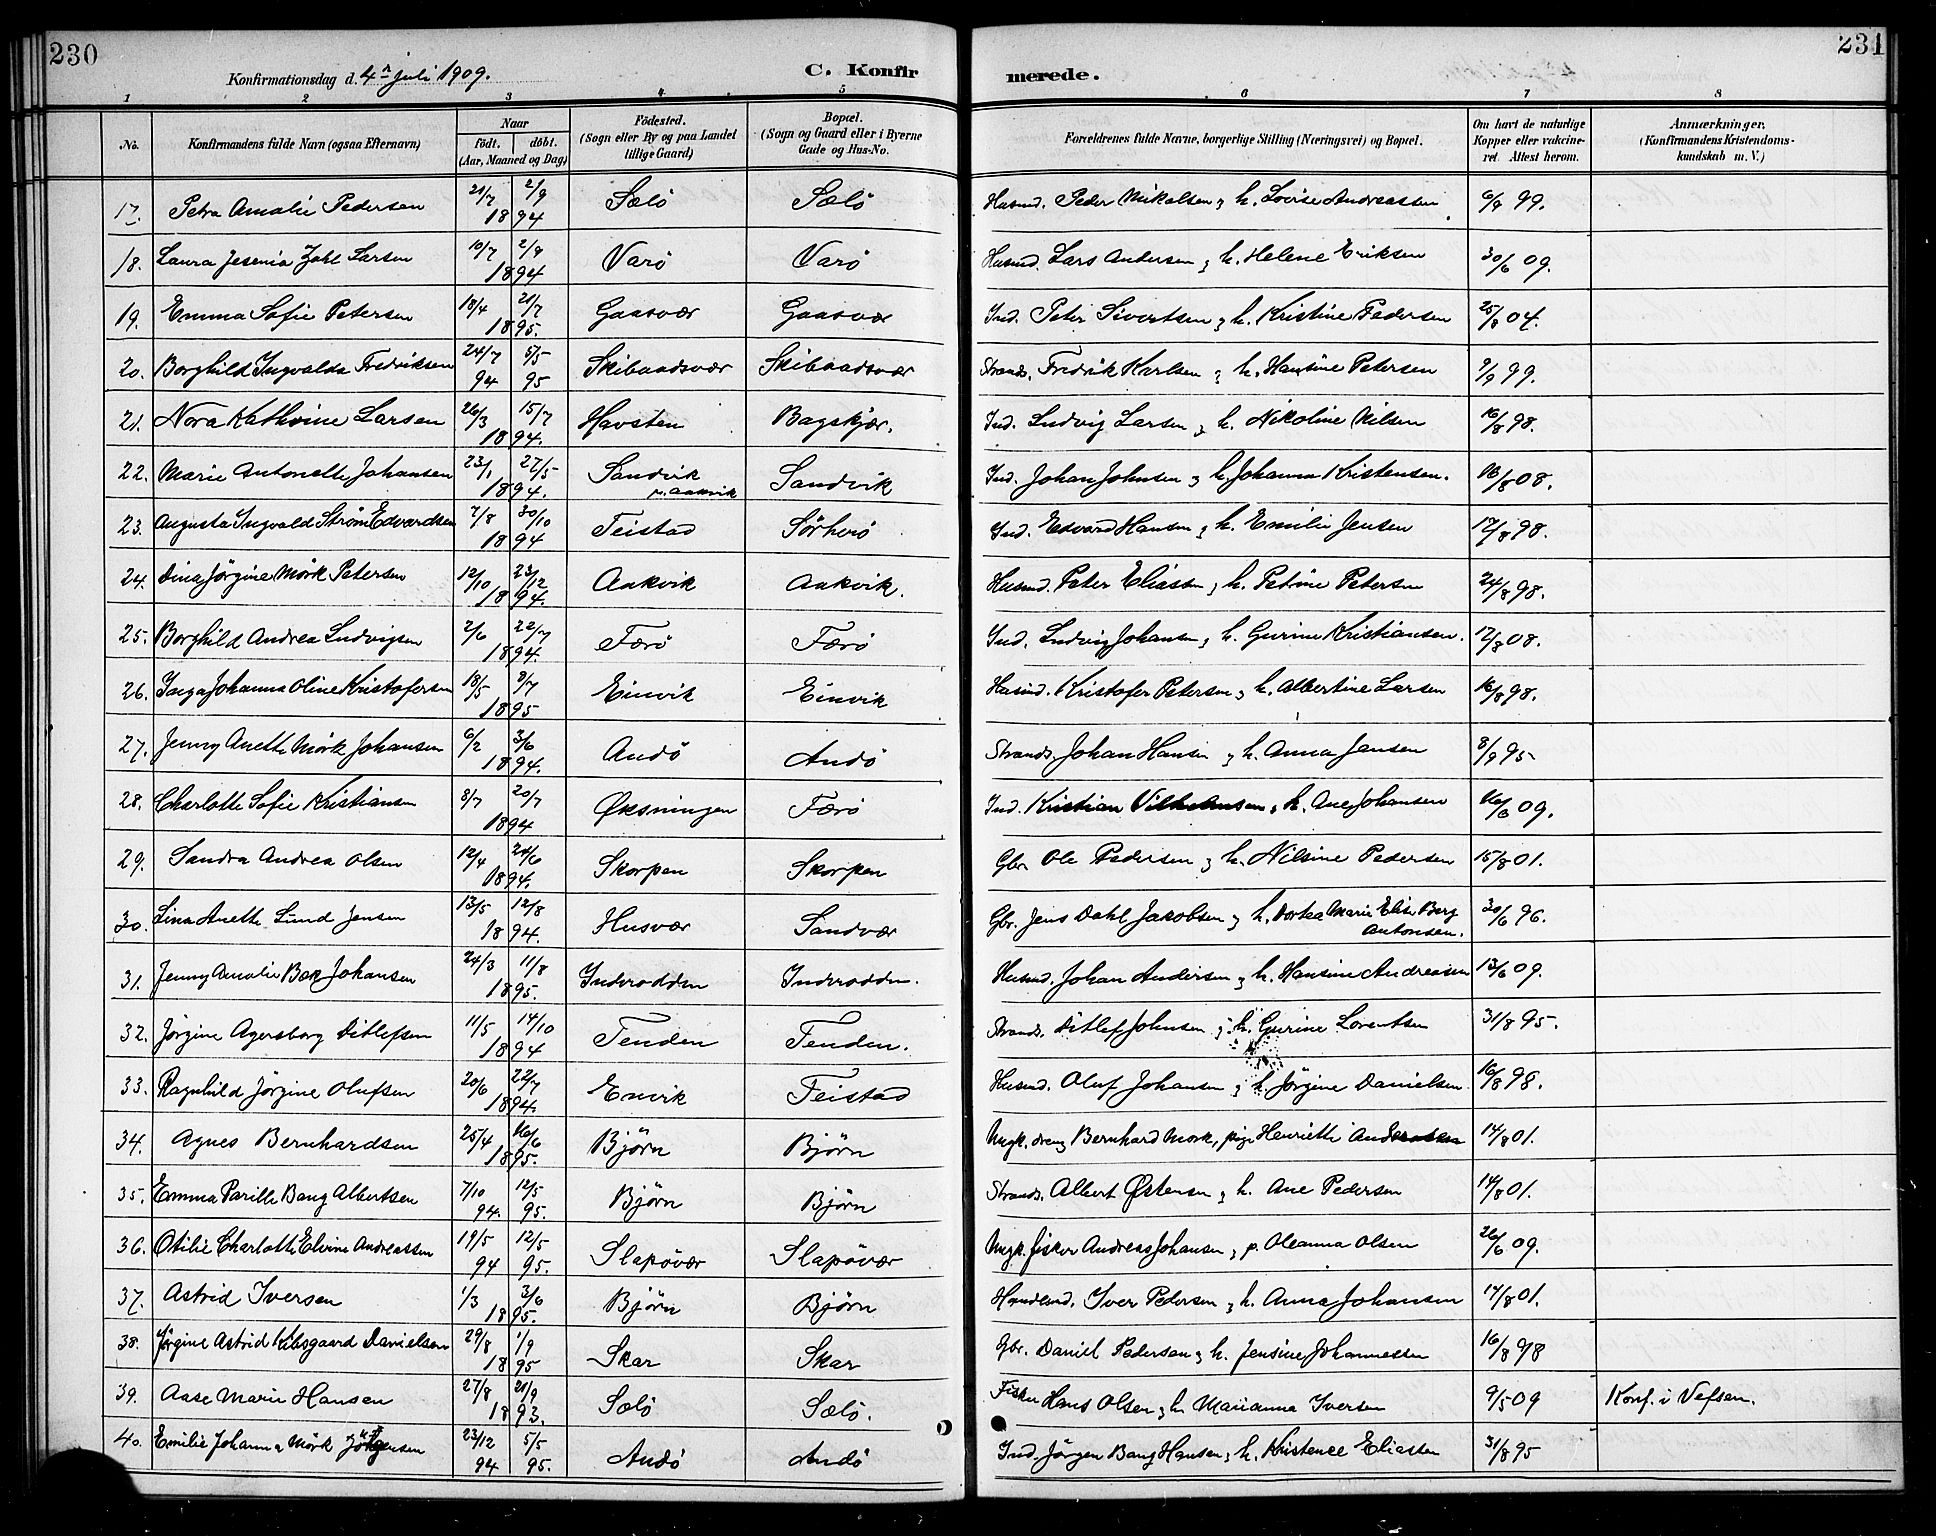 230
231
Konfirmationsdag d. 4de juli 1909.
C. Konfirmerede.
1 2 3 4 5 6 7 8
No. | Konfirmandens fulde Navn (ogsaa Efternavn) | Naar født. døbt. (Aar, Maaned og Dag) | Födested. (Sogn eller By og paa Landet tillige Gaard) | Bopæl. (Sogn og Gaard eller i Byerne Gade og Hus-No. | Forældrenes fulde Navne, borgerlige Stilling (Næringsvei) og Bopæl. | Om havt de naturlige Kopper eller vakcineret. Attest herom. | Anmærkninger. (Konfirmandens Kristendomskundskab m. V.)
17. Petra Amalie Pedersen 21/7 2/9 1894 Sælö Sælö Husmd. Peder Mikalsen & h. Lovise Andreassen 6/9 99.
18. Laura Jesenia Zahl Larsen 10/7 2/9 1894 Varö Varö Husmd. Lars Andersen & h. Helene Eriksen 30/6 09.
19. Emma Sofie Petersen 18/4 21/7 1895. Gaasvær Gaasvær Ind. Peter Sivertsen & h. Kristine Pedersen 25/8 04.
20. Borghild Ingvalda Fredriksen 24/7 94 5/5 95 Skibaadsvær Skibaadsvær Strands. Fredrik Karlsen & h. Hansine Petersen 9/9 99.
21. Nora Kathrine Larsen 26/3 15/7 1894. Havsten Bagskjær. Ind. Ludvig Larsen & h. Nikoline Nilsen 16/8 98.
22. Marie Antonette Johansen 23/1 27/5 1894. Sandvik p. Aakvik Sandvik Ind. Johan Johnsen & h. Johanna Kristensen. 13/8 08.
23. Augusta Ingvald Strøm Edvardsen 7/8 30/10 1894 Teistad Sörherö Ind. Edvard Hansen & h. Emilie Jensen 17/8 98.
24. Dina Jörgine Mörk Petersen 12/10 23/12 1894. Aakvik Aakvik. Husmd. Peter Eliassen & h. Petine Petersen 24/8 98.
25. Borghild Andrea Ludvigsen 2/6 22/7 1894. Færö Færö Ind. Ludvig Johansen & h. Gurine Kristiansen. 12/8 08.
26. Inga Johanna Oline Kristofersen 18/5 8/7 1895 Einvik Einvik Husmd. Kristofer Petersen & h. Albertine Larsen 16/8 98.
27. Jenny Anette Mörk Johansen 6/2 3/6 1894. Andö Andö Strands. Johan Hansen & h. Anna Jensen 8/9 95
28. Charlotte Sofie Kristiansen 8/7 20/7 1894 Øksningen Færö Ind. Kristian Vilhelmsen & h. Ane Johansen 16/6 09.
29. Sandra Andrea Olsen 12/4 24/6 1894. Skorpen Skorpen Gbr. Ole Pedersen & h. Nilsine Pedersen 15/8 01.
30. Lina Anette Lund Jensen 13/5 12/8 1894. Husvær Sandvær Gbr. Jens Dahl Jakobsen & h. Dortea Marie Elise Berg Antonsen. 30/6 96.
31. Jenny Amalie Bax Johansen 24/3 11/8 1895. Inderodden Inderodden. Husmd. Johan Andersen & h. Hansine Andreasen 13/6 09.
32. Jörgine Agersborg Ditlefsen 11/5 14/10 1894 Tenden Tenden. Strands. Ditlef Johnsen & h. Gurine Lorentsen 31/8 95.
33. Ragnhild Jörgine Olufsen 20/6 22/7 1894. Envik Teistad Husmd. Oluf Johansen & h. Jörgine Danielsen 16/8 98.
34. Agnes Bernhardsen 25/4 16/6 1895. Björn Björn Ungk. dreng Bernhard Mork, pige Henriette Andersen 14/8 01.
35. Emma Parille Bang Albertsen 7/10 94. 12/5 95. Björn Björn Strands. Albert Østensen & h. Ane Pedersen 14/8 01.
36. Otilie Charlotte Elvine Andreassen 19/5 94 12/5 95. Slapövær Slapövær Ungk. fisker Andreas Johansen & p. Oleanna Olsen 26/6 09.
37. Astrid Iversen 1/3 3/6 1895. Björn Björn Handlend. Iver Pedersen & h. Anna Johansen 14/8 01.
38. Jörgine Astrid Kilsgaard Danielsen 29/8 1/9 1895 Skar Skar Gbr. Daniel Pedersen & h. Jensine Johannessen 16/8 98
39. Aase Marie Hansen 27/8 21/9 1893. Sælö Sælö. Fisker Hans Olsen & h. Marianna Iversen 9/5 09 Konf. i Vefsen.
40. Emilie Johanna Mörk Jörgensen 23/12 94 5/5 95. Andö Andö Ind. Jörgen Bang Hansen & h. Kristence Eliassen 31/8 95